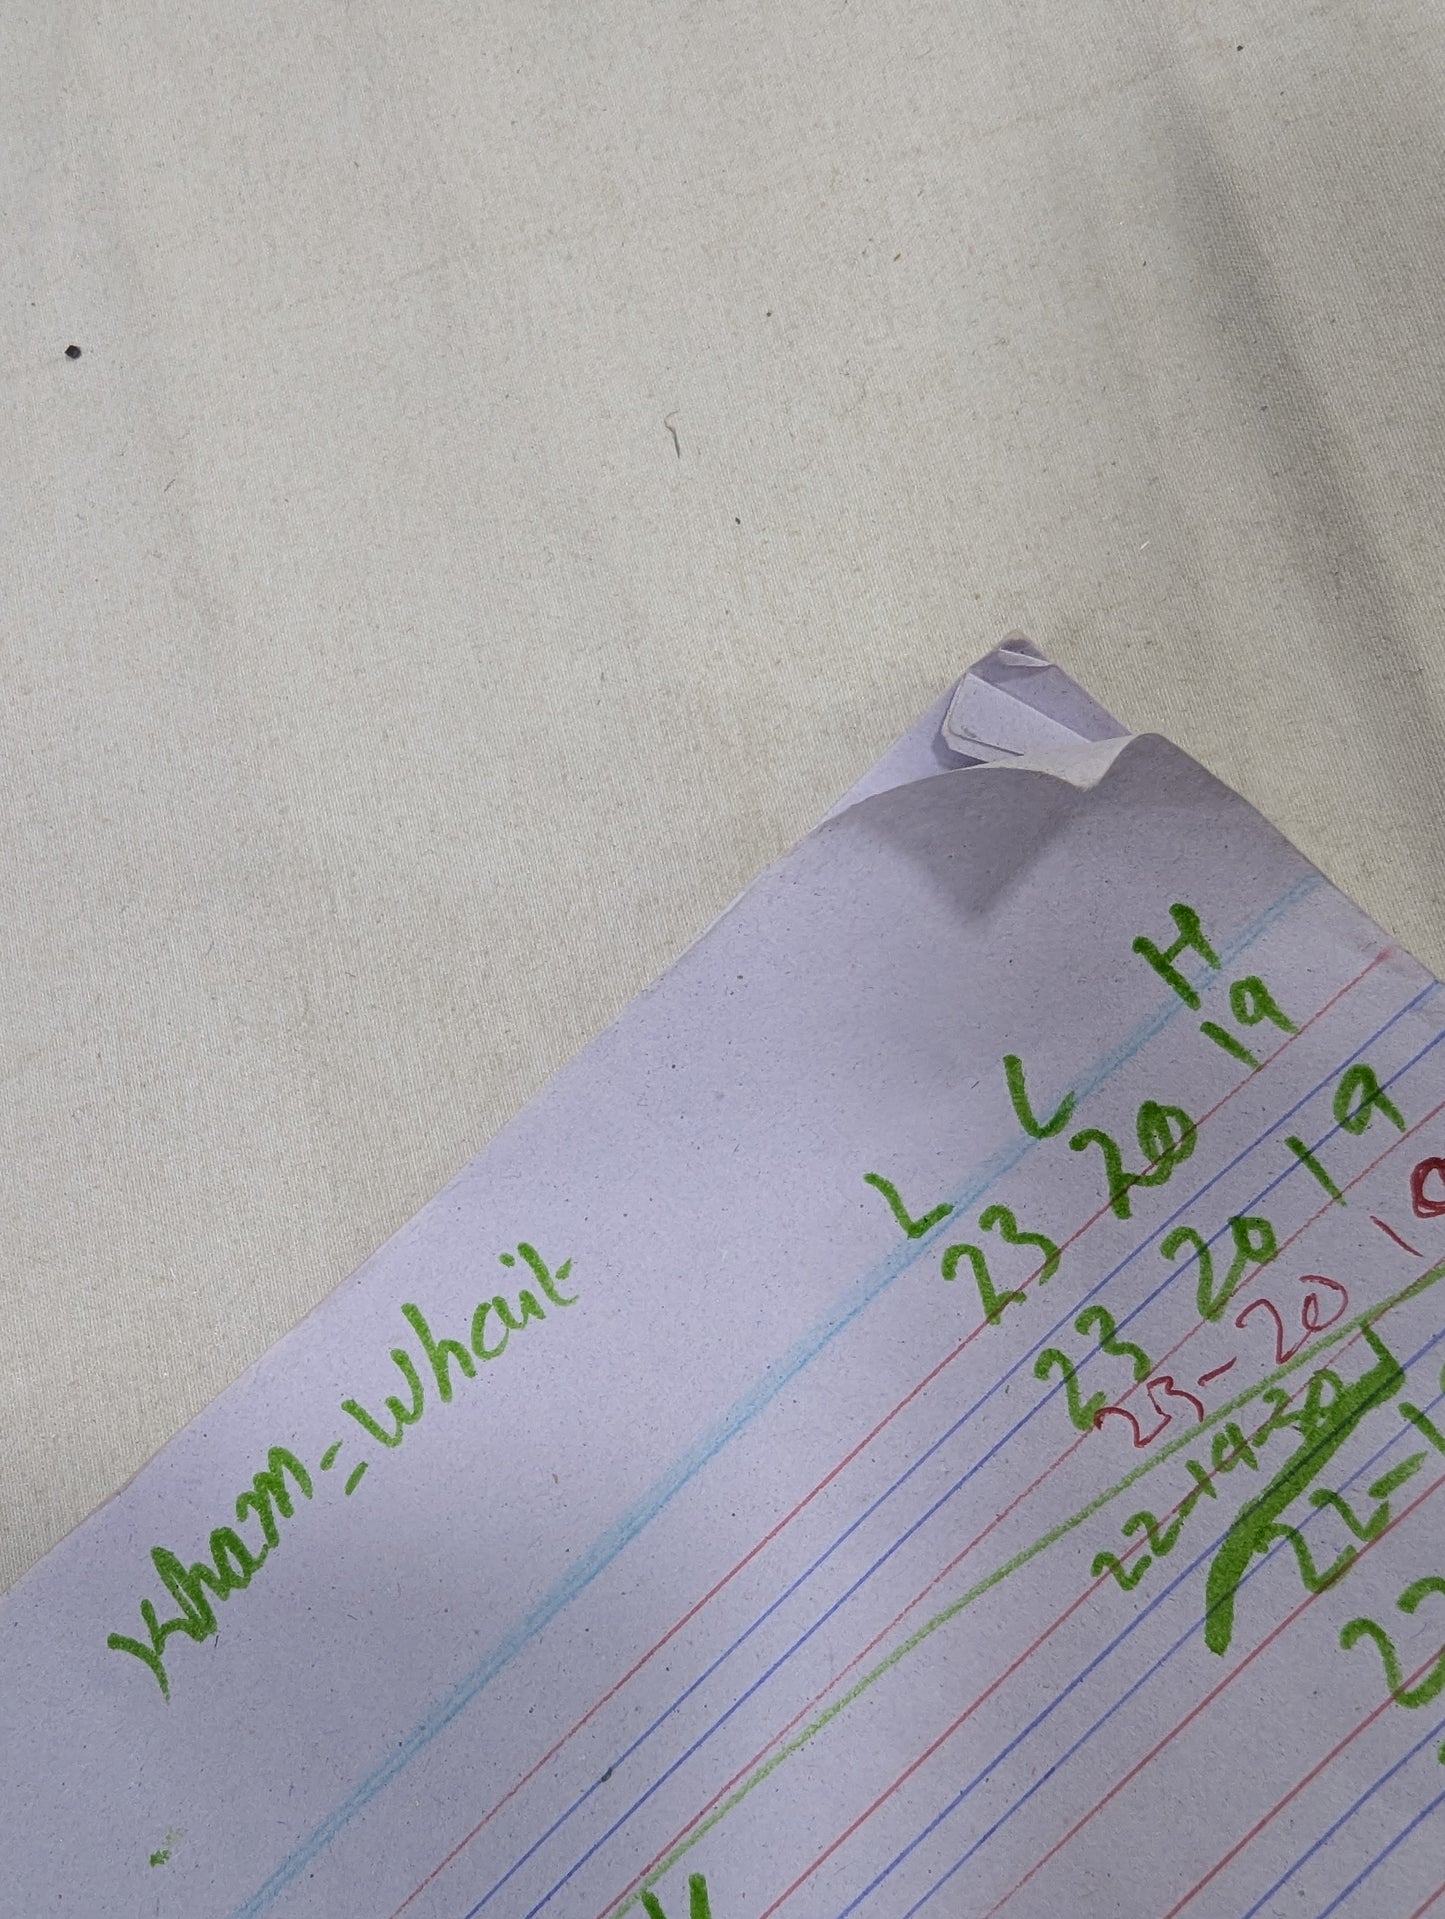 Kham = Whait
L L H
23 20 19
23 20 19
23-20
22-19-20
22-1